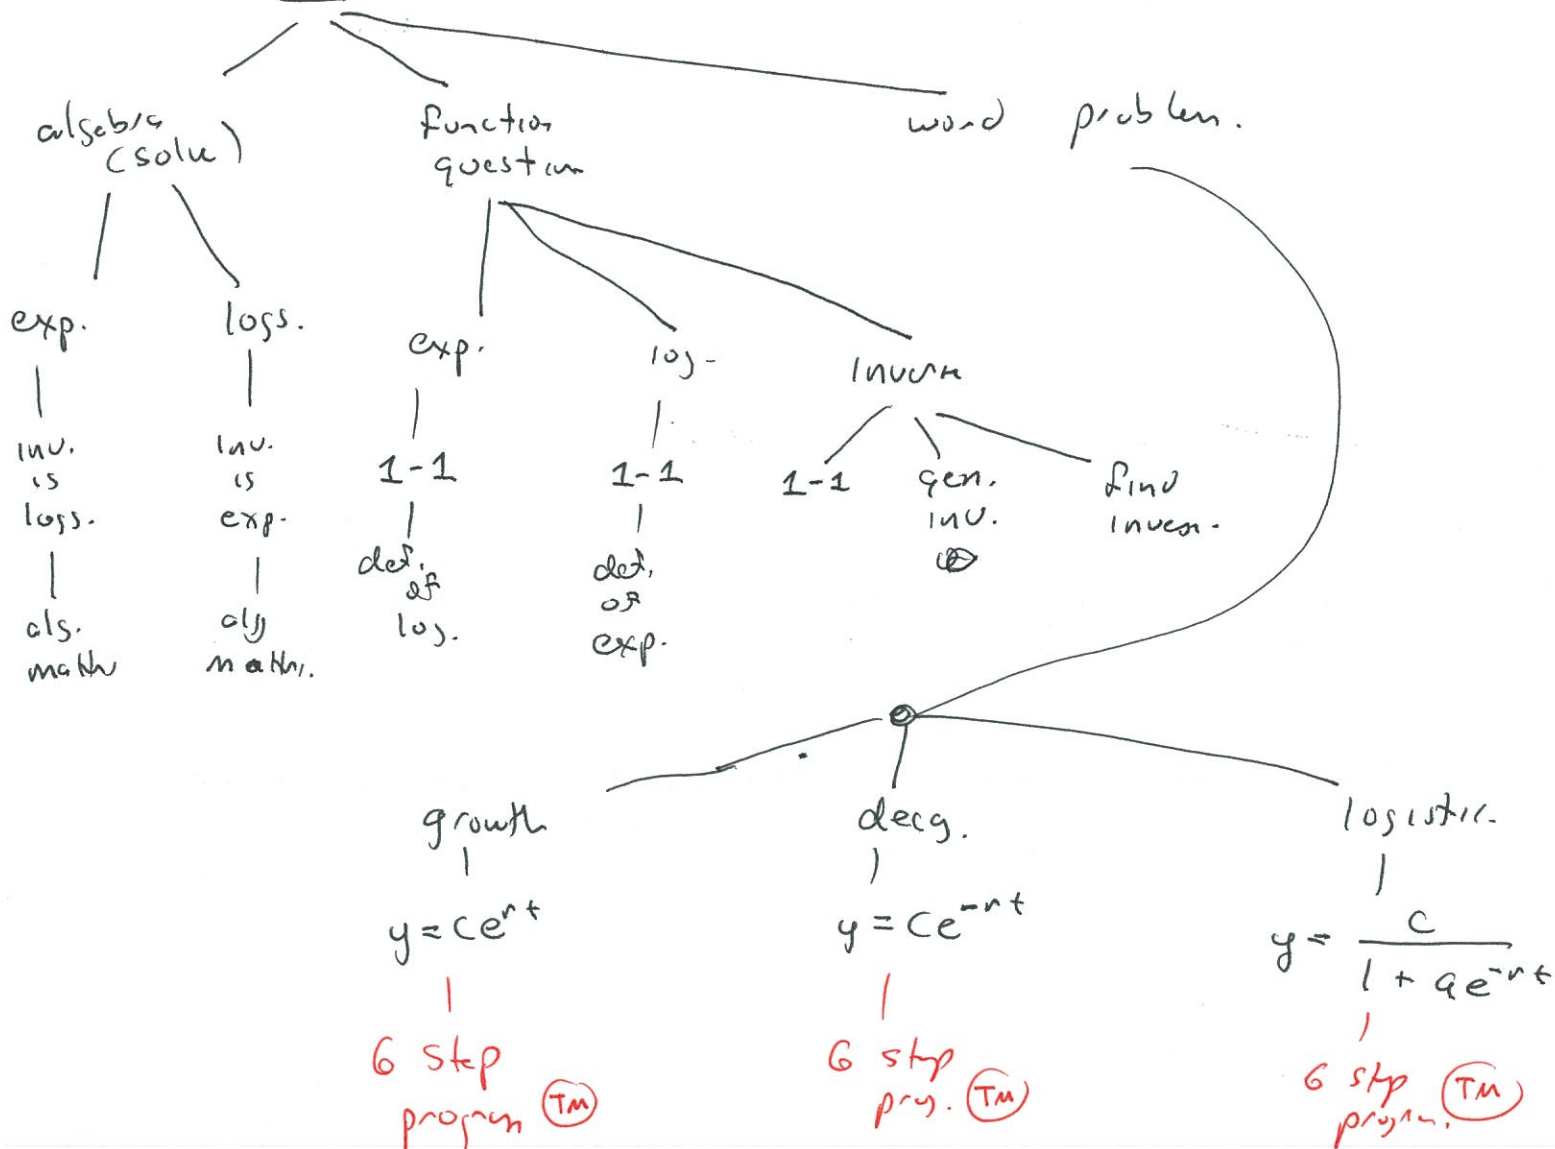 algebra
(solve)
function
question
word problem.
exp.
logs.
exp.
log.
inverse
inv.
is
logs.
inv.
is
exp.
1-1
1-1
1-1
gen.
inv.
find
inverse.
alg.
math
alg
math.
def.
of
log.
def.
of
exp.
growth
decay.
logistic.
y = Ce^{rt}
y = Ce^{-rt}
y = \frac{C}{1 + ae^{-rt}}
6 step
program TM
6 step
prog. TM
6 step
program. TM